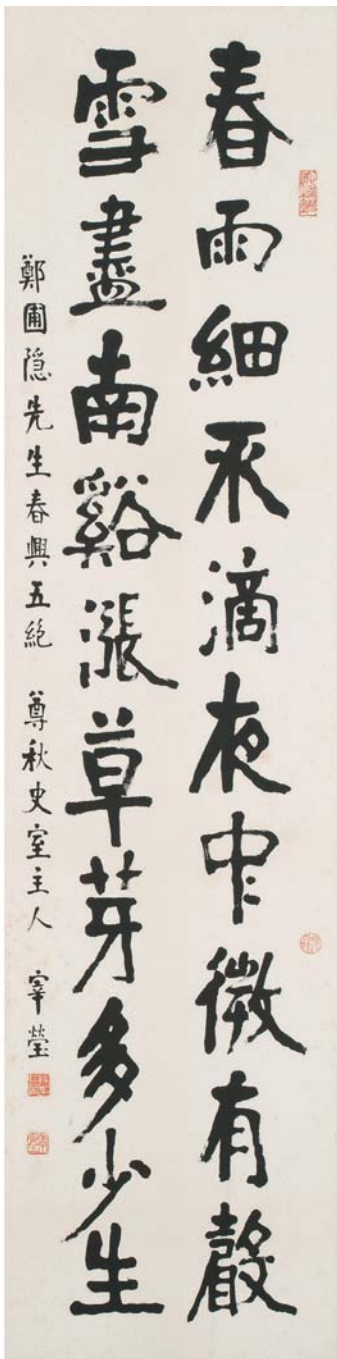 春雨細不滴夜中微有聲
雪盡南谿漲草芽多少生
鄭圃隐先生春興五絶 尊秋史室主人 宰瑩